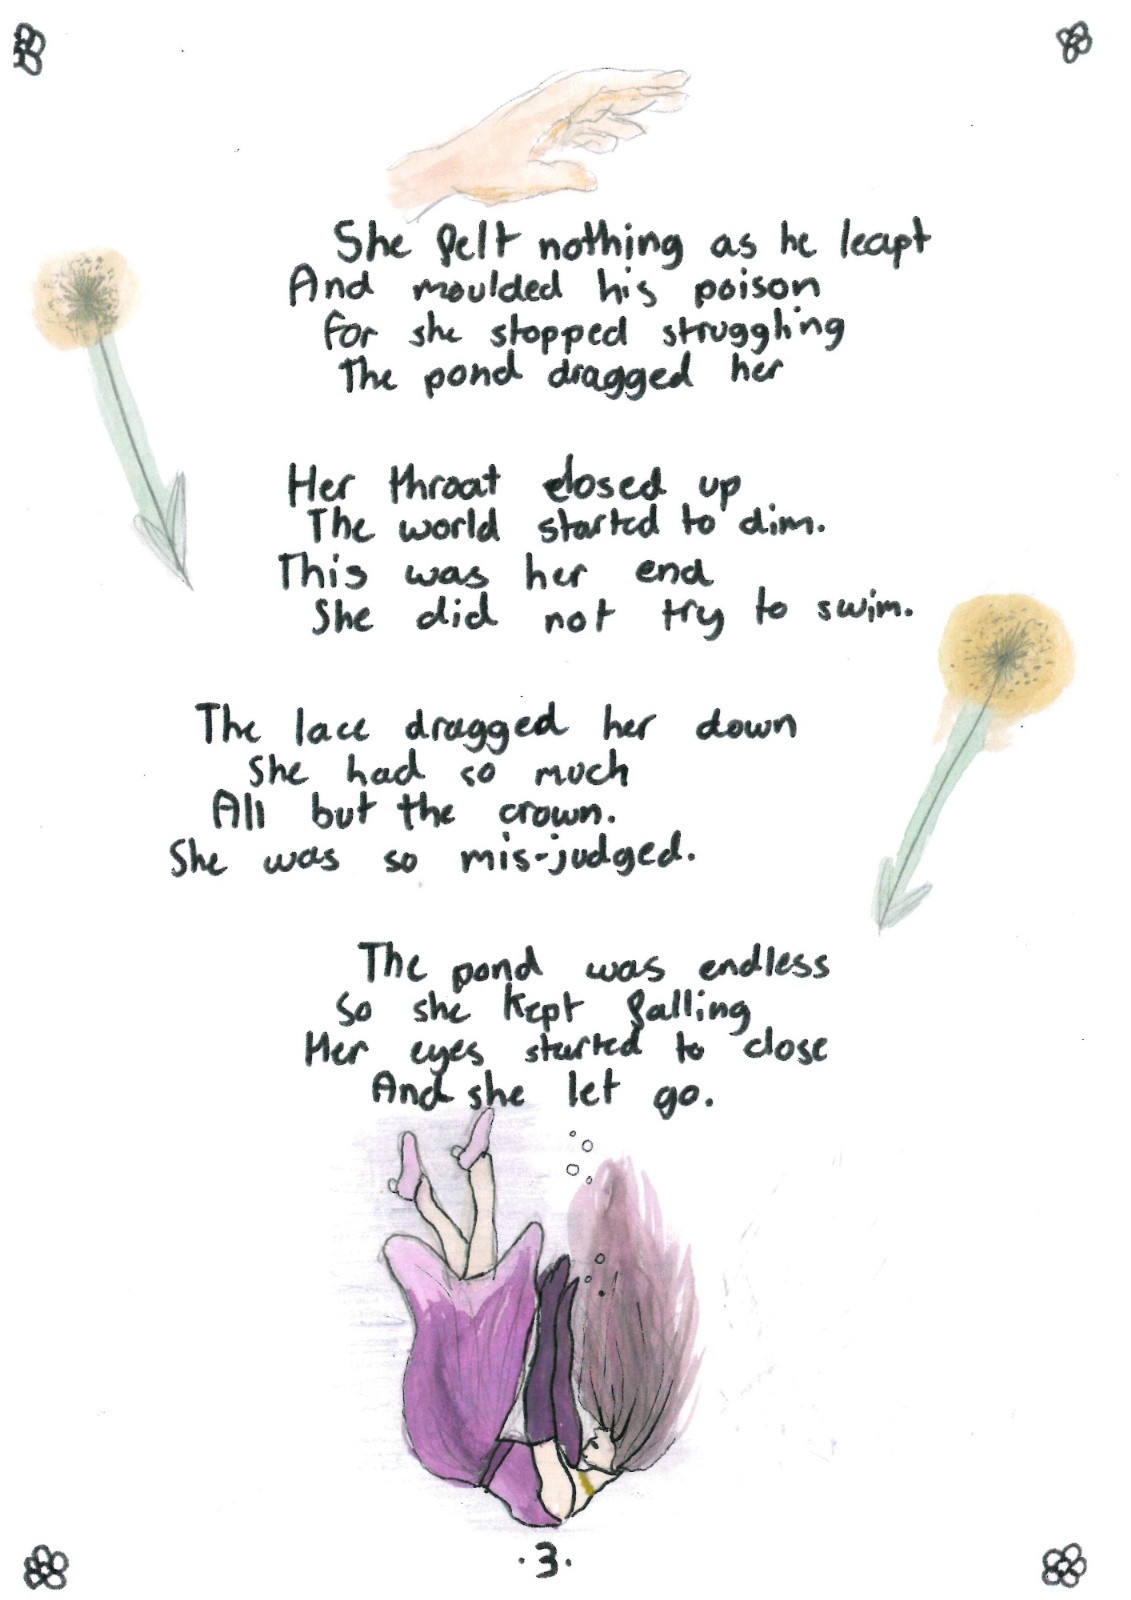 She felt nothing as he leapt
And moulded his poison
For she stopped struggling
The pond dragged her
Her throat closed up
The world started to dim.
This was her end
She did not try to swim.
The lace dragged her down
She had so much
All but the crown.
She was so mis-judged.
The pond was endless
So she kept falling
Her eyes started to close
And she let go.
·3·